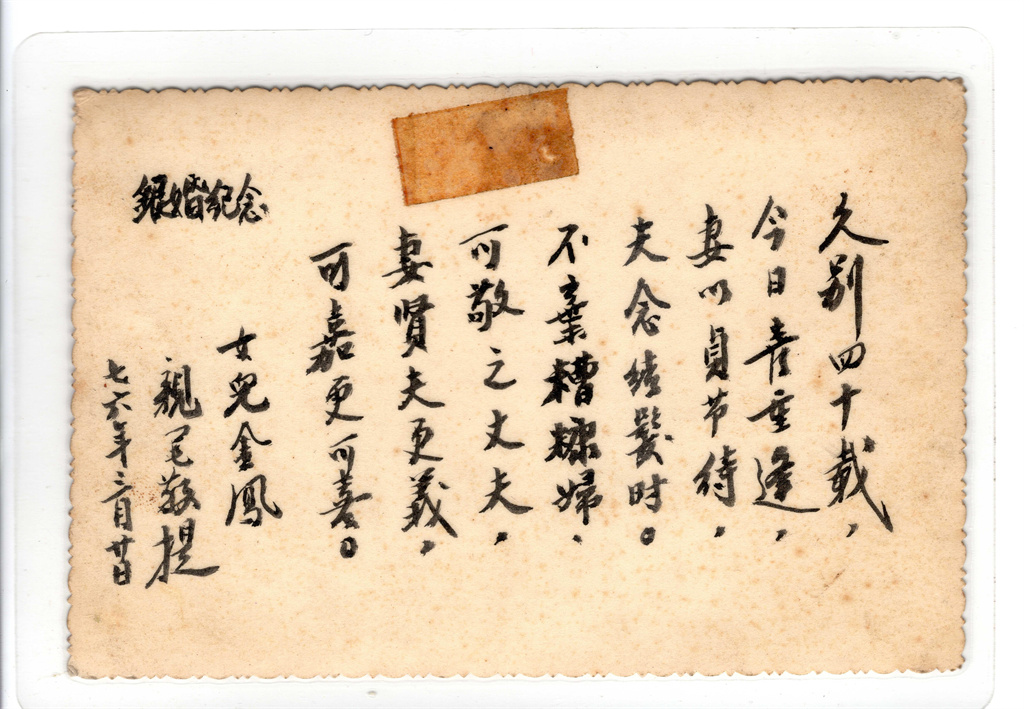 銀婚紀念
久别四十載，
今日喜重逢，
妻以貞节待，
夫念结髮时。
不棄糟糠婦、
可敬之丈夫，
妻賢夫更義，
可嘉更可喜。
女兒金鳳
親笔敬提
七六年三月廿日